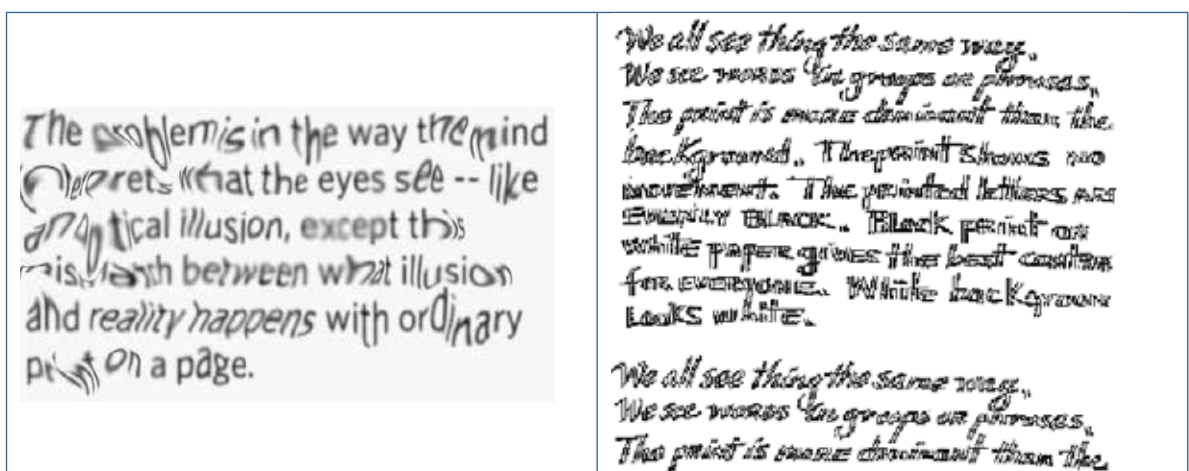 The problem is in the way the mind
interprets what the eyes see -- like
an optical illusion, except this
mismatch between what illusion
and reality happens with ordinary
print on a page.
We all see thing the same way.
We see words in groups or phrases.
The print is more dominant than the
background. The print shows no
movement. The printed letters are
EVENLY BLACK. Black print on
white paper gives the best contra
for everyone. White backgroun
Looks white.
We all see thing the same way.
We see words in groups or phrases.
The print is more dominant than the